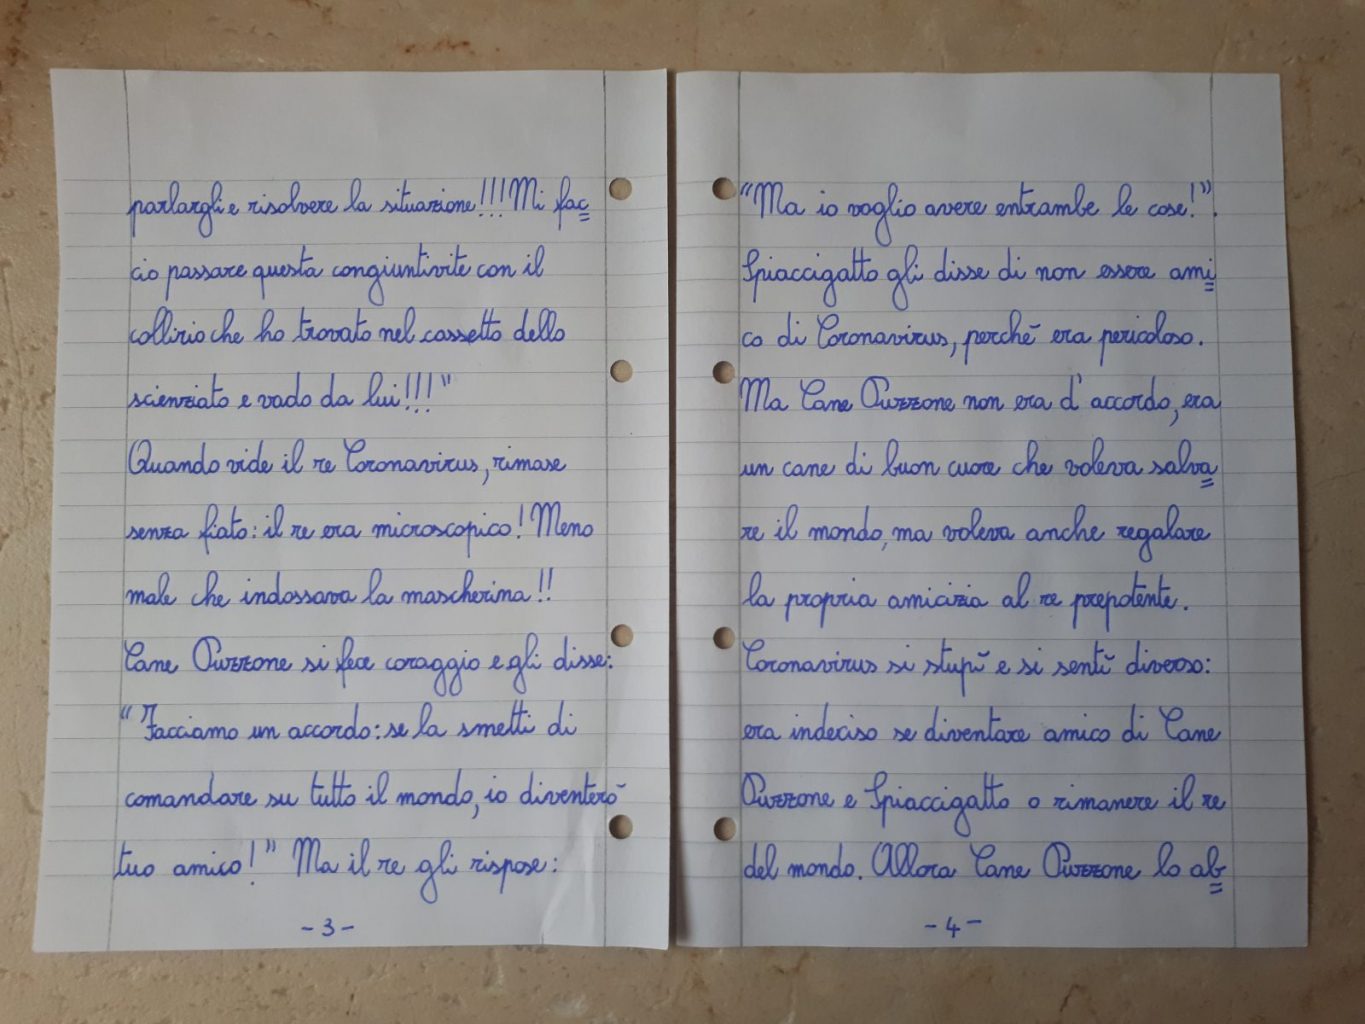 parlargli e risolvere la situazione!!! Mi fac
cio passare questa congiuntivite con il
collirio che ho trovato nel cassetto dello
scienziato e vado da lui!!!"
Quando vide il re Coronavirus, rimase
senza fiato: il re era microscopico! Meno
male che indossava la mascherina!!
Cane Puzzone si fece coraggio e gli disse:
"Facciamo un accordo: se la smetti di
comandare su tutto il mondo, io diventerò
tuo amico!" Ma il re gli rispose:
- 3 -
"Ma io voglio avere entrambe le cose!".
Spiaccigatto gli disse di non essere ami
co di Coronavirus, perchè era pericoloso.
Ma Cane Puzzone non era d'accordo, era
un cane di buon cuore che voleva salva
re il mondo, ma voleva anche regalare
la propria amicizia al re prepotente.
Coronavirus si stupì e si sentì diverso:
era indeciso se diventare amico di Cane
Puzzone e Spiaccigatto o rimanere il re
del mondo. Allora Cane Puzzone lo ab
- 4 -